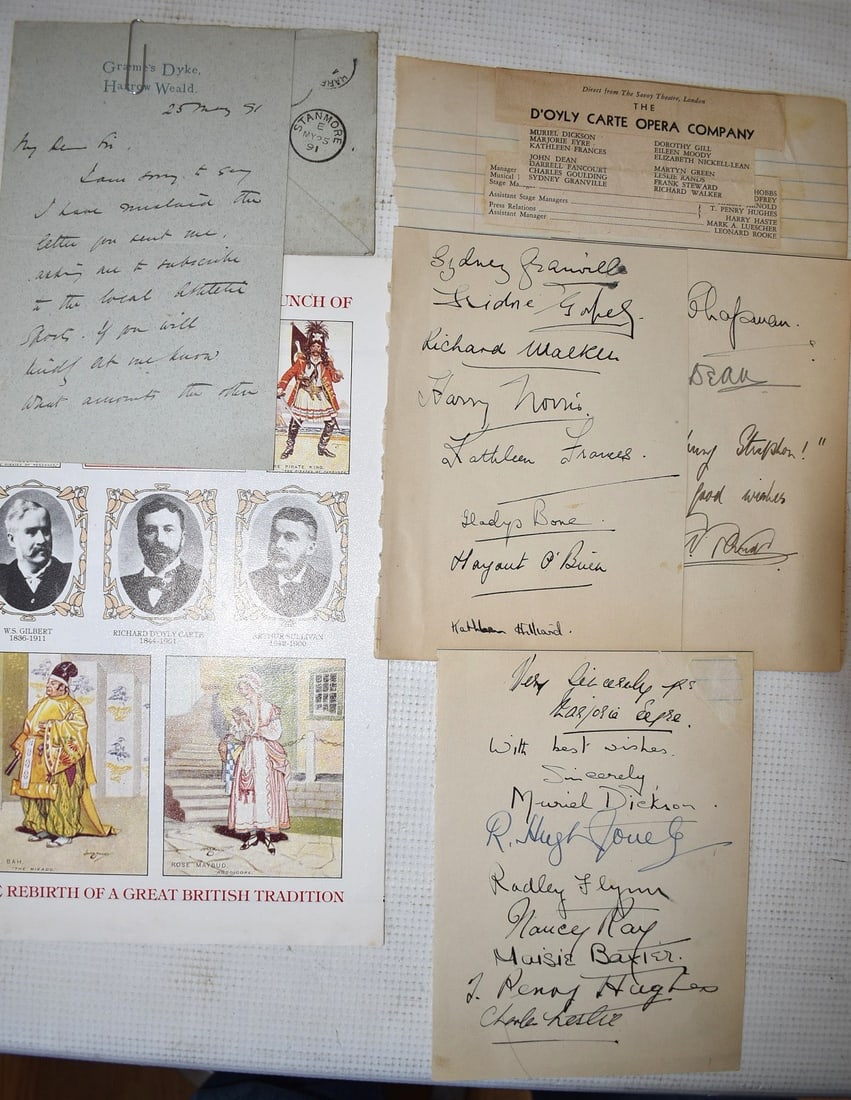 Graeme's Dyke,
Harrow Weald.
25 May 91
My Dear Sir.
I am sorry to say
I have mislaid the
letter you sent me,
asking me to subscribe
to the local Athletic
Sports. If you will
kindly let me know
what amounts the other
STANMORE
E
MY 25
91
UNCH OF
PIRATE KING.
W.S. GILBERT
1836-1911
RICHARD D'OYLY CARTE
1844-1901
ARTHUR SULLIVAN
1842-1900
BAH.
"THE MIKADO."
ROSE MAYBUD.
"RUDDIGORE."
REBIRTH OF A GREAT BRITISH TRADITION
Direct from The Savoy Theatre, London
THE
D'OYLY CARTE OPERA COMPANY
MURIEL DICKSON
MARJORIE EYRE
KATHLEEN FRANCES
DOROTHY GILL
EILEEN MOODY
ELIZABETH NICKELL-LEAN
JOHN DEAN
DARRELL FANCOURT
CHARLES GOULDING
SYDNEY GRANVILLE
MARTYN GREEN
LESLIE RANDS
FRANK STEWARD
RICHARD WALKER
Manager
Musical
Stage Man
Assistant Stage Managers
Press Relations
Assistant Manager
HOBBS
DFREY
RNOLD
T. PENRY HUGHES
HARRY HASTE
MARK A. LUESCHER
LEONARD ROOKE
Sydney Granville
Richard Walker
Harry Norris.
Kathleen Frances.
Gladys Bone.
O'Brien
Kathleen Hilliard.
Chapman.
DEAN
Strephon!"
good wishes
Very Sincerely yrs
Marjorie Eyre.
With best wishes.
Sincerely
Muriel Dickson.
R. Hugh Jones
Radley Flynn
Nancy Ray
Maisie Baxter.
T. Penry Hughes
Charles Leslie